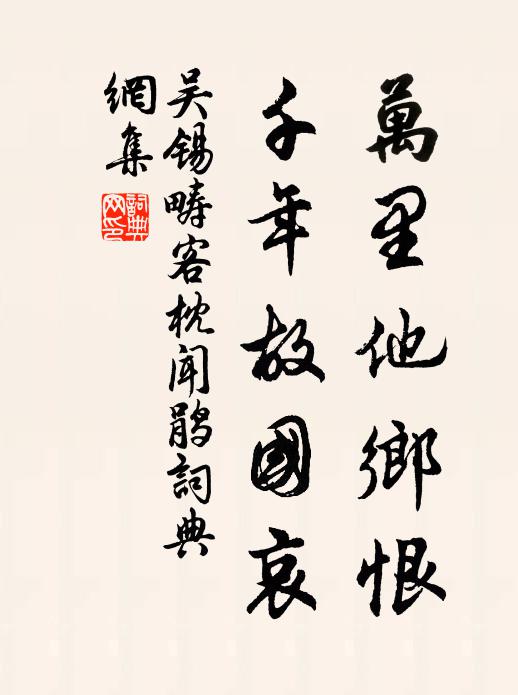 萬里他鄉恨
千年故國哀
吴锡畴客枕闻鹃詞典
網集
詞典網印